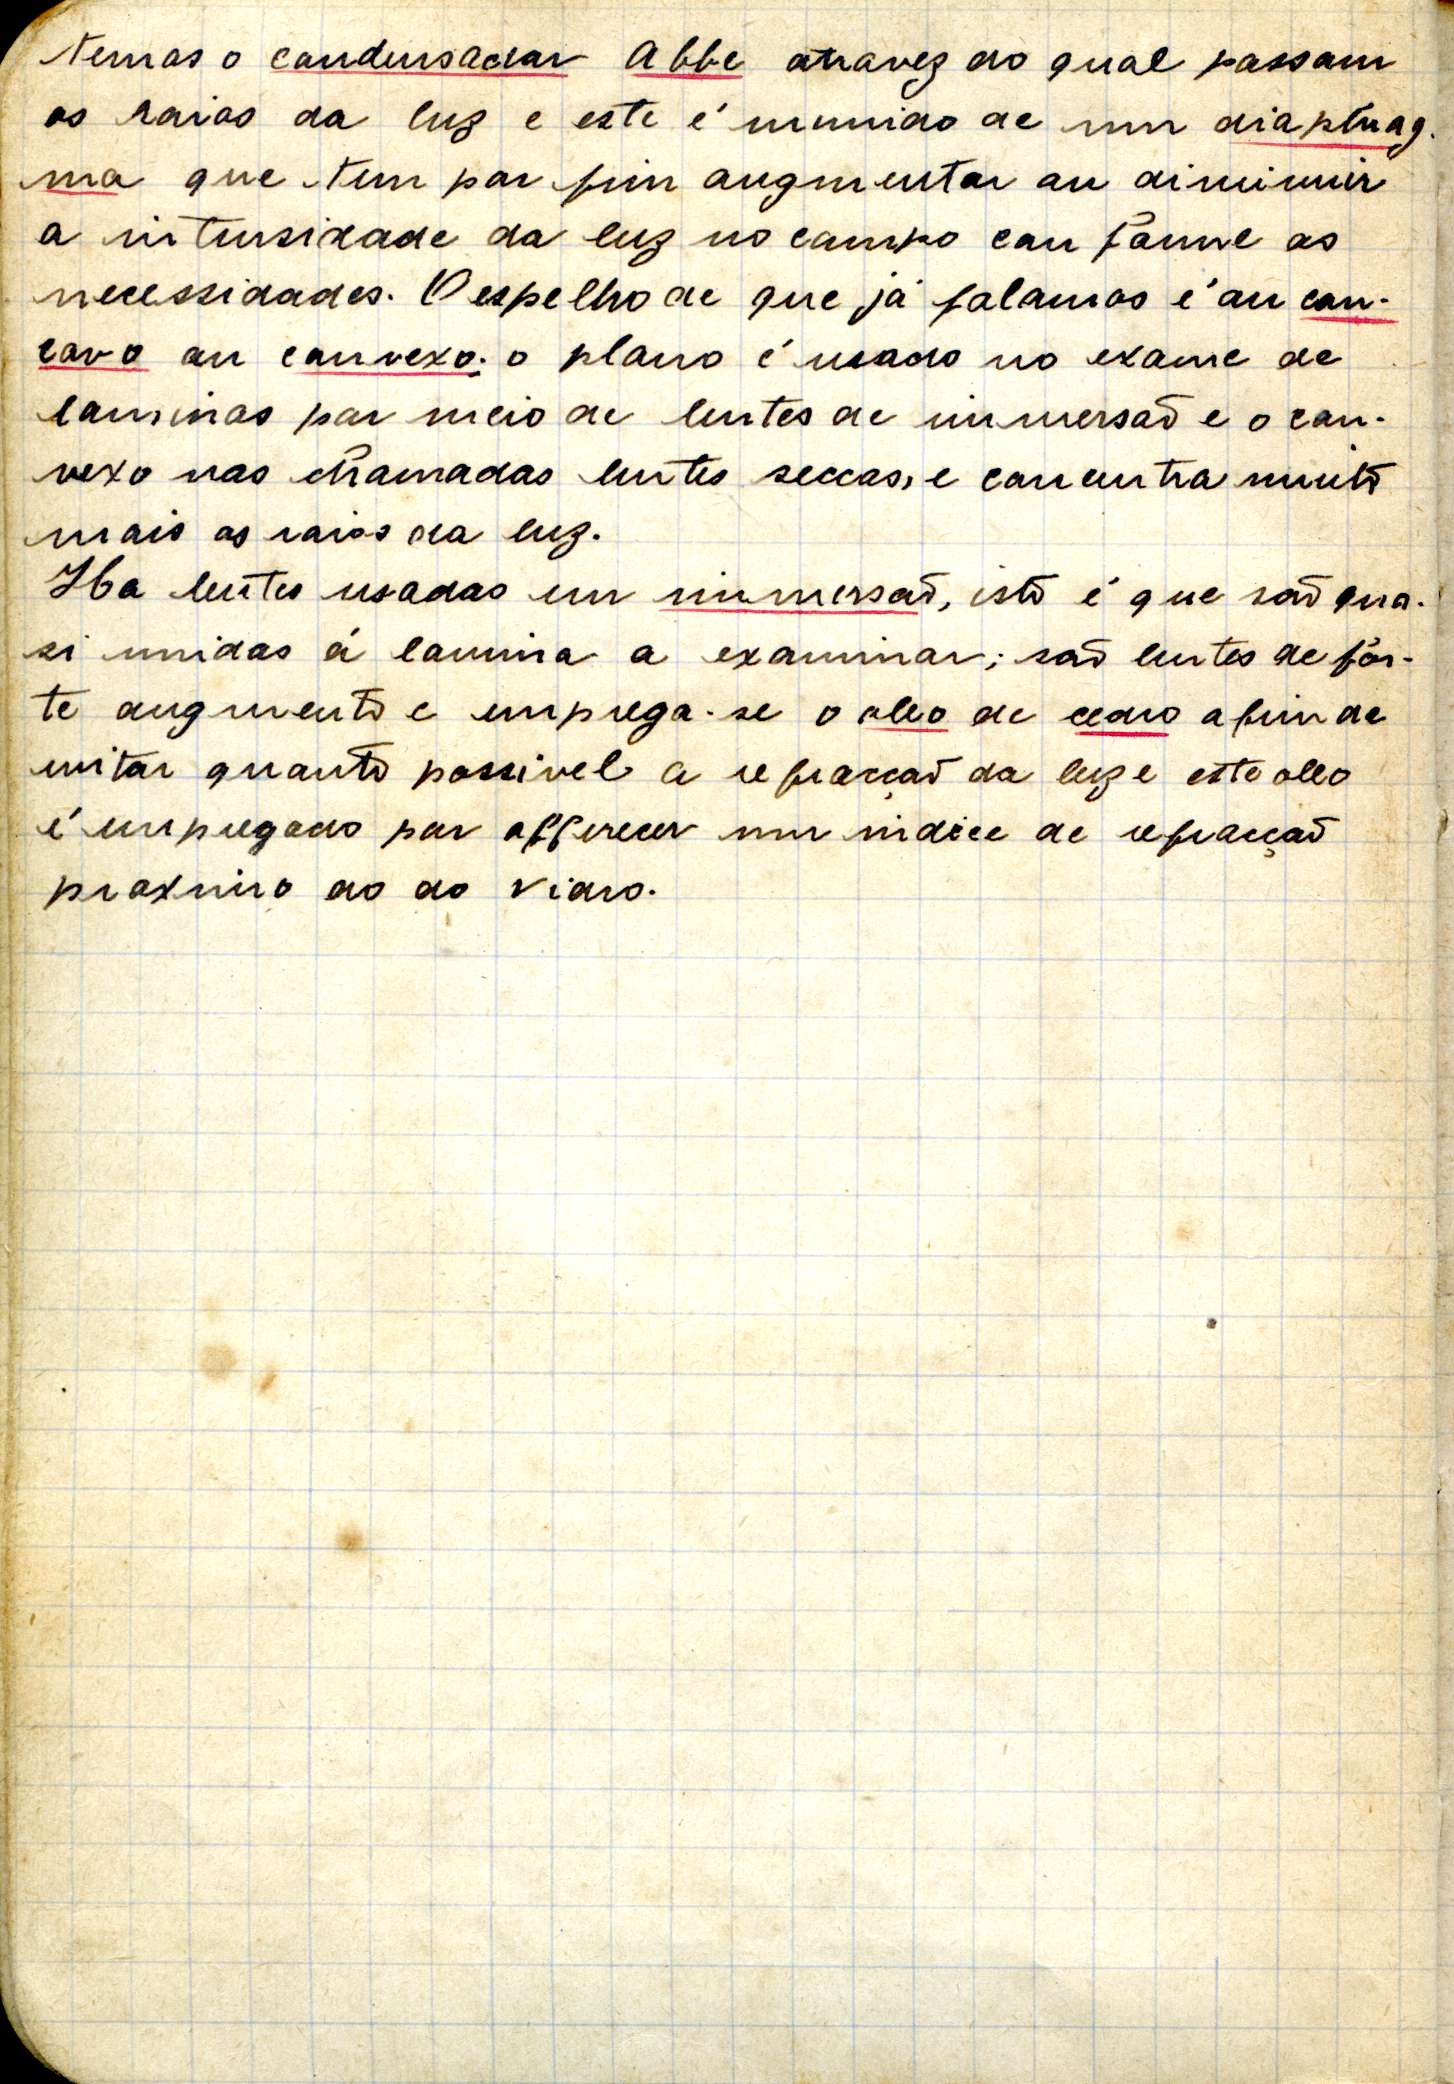 temos o condensador Abbe atravez do qual passam
os raios da luz e este é munido de um diaphrag-
ma que tem por fim augmentar ou diminuir
a intensidade da luz no campo conforme as
necessidades. O espelho de que já falamos é ou con-
cavo ou convexo: o plano é usado no exame de
laminas por meio de lentes de immersão e o con-
vexo nas chamadas lentes seccas, e concentra muito
mais os raios da luz.
Ha lentes usadas em immersão, isto é que são qua-
si unidas á lamina a examinar; são lentes de for-
te augmento e emprega-se o oleo de cedro afim de
evitar quanto possivel a refracção da luz e este oleo
é empregado por offerecer um indice de refracção
proximo ao do vidro.